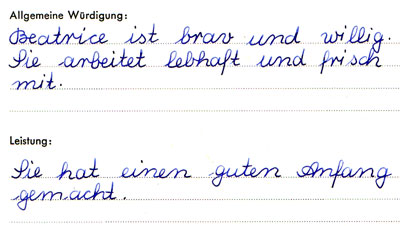 Allgemeine Würdigung:
Beatrice ist brav und willig.
Sie arbeitet lebhaft und frisch
mit.
Leistung:
Sie hat einen guten Anfang
gemacht.